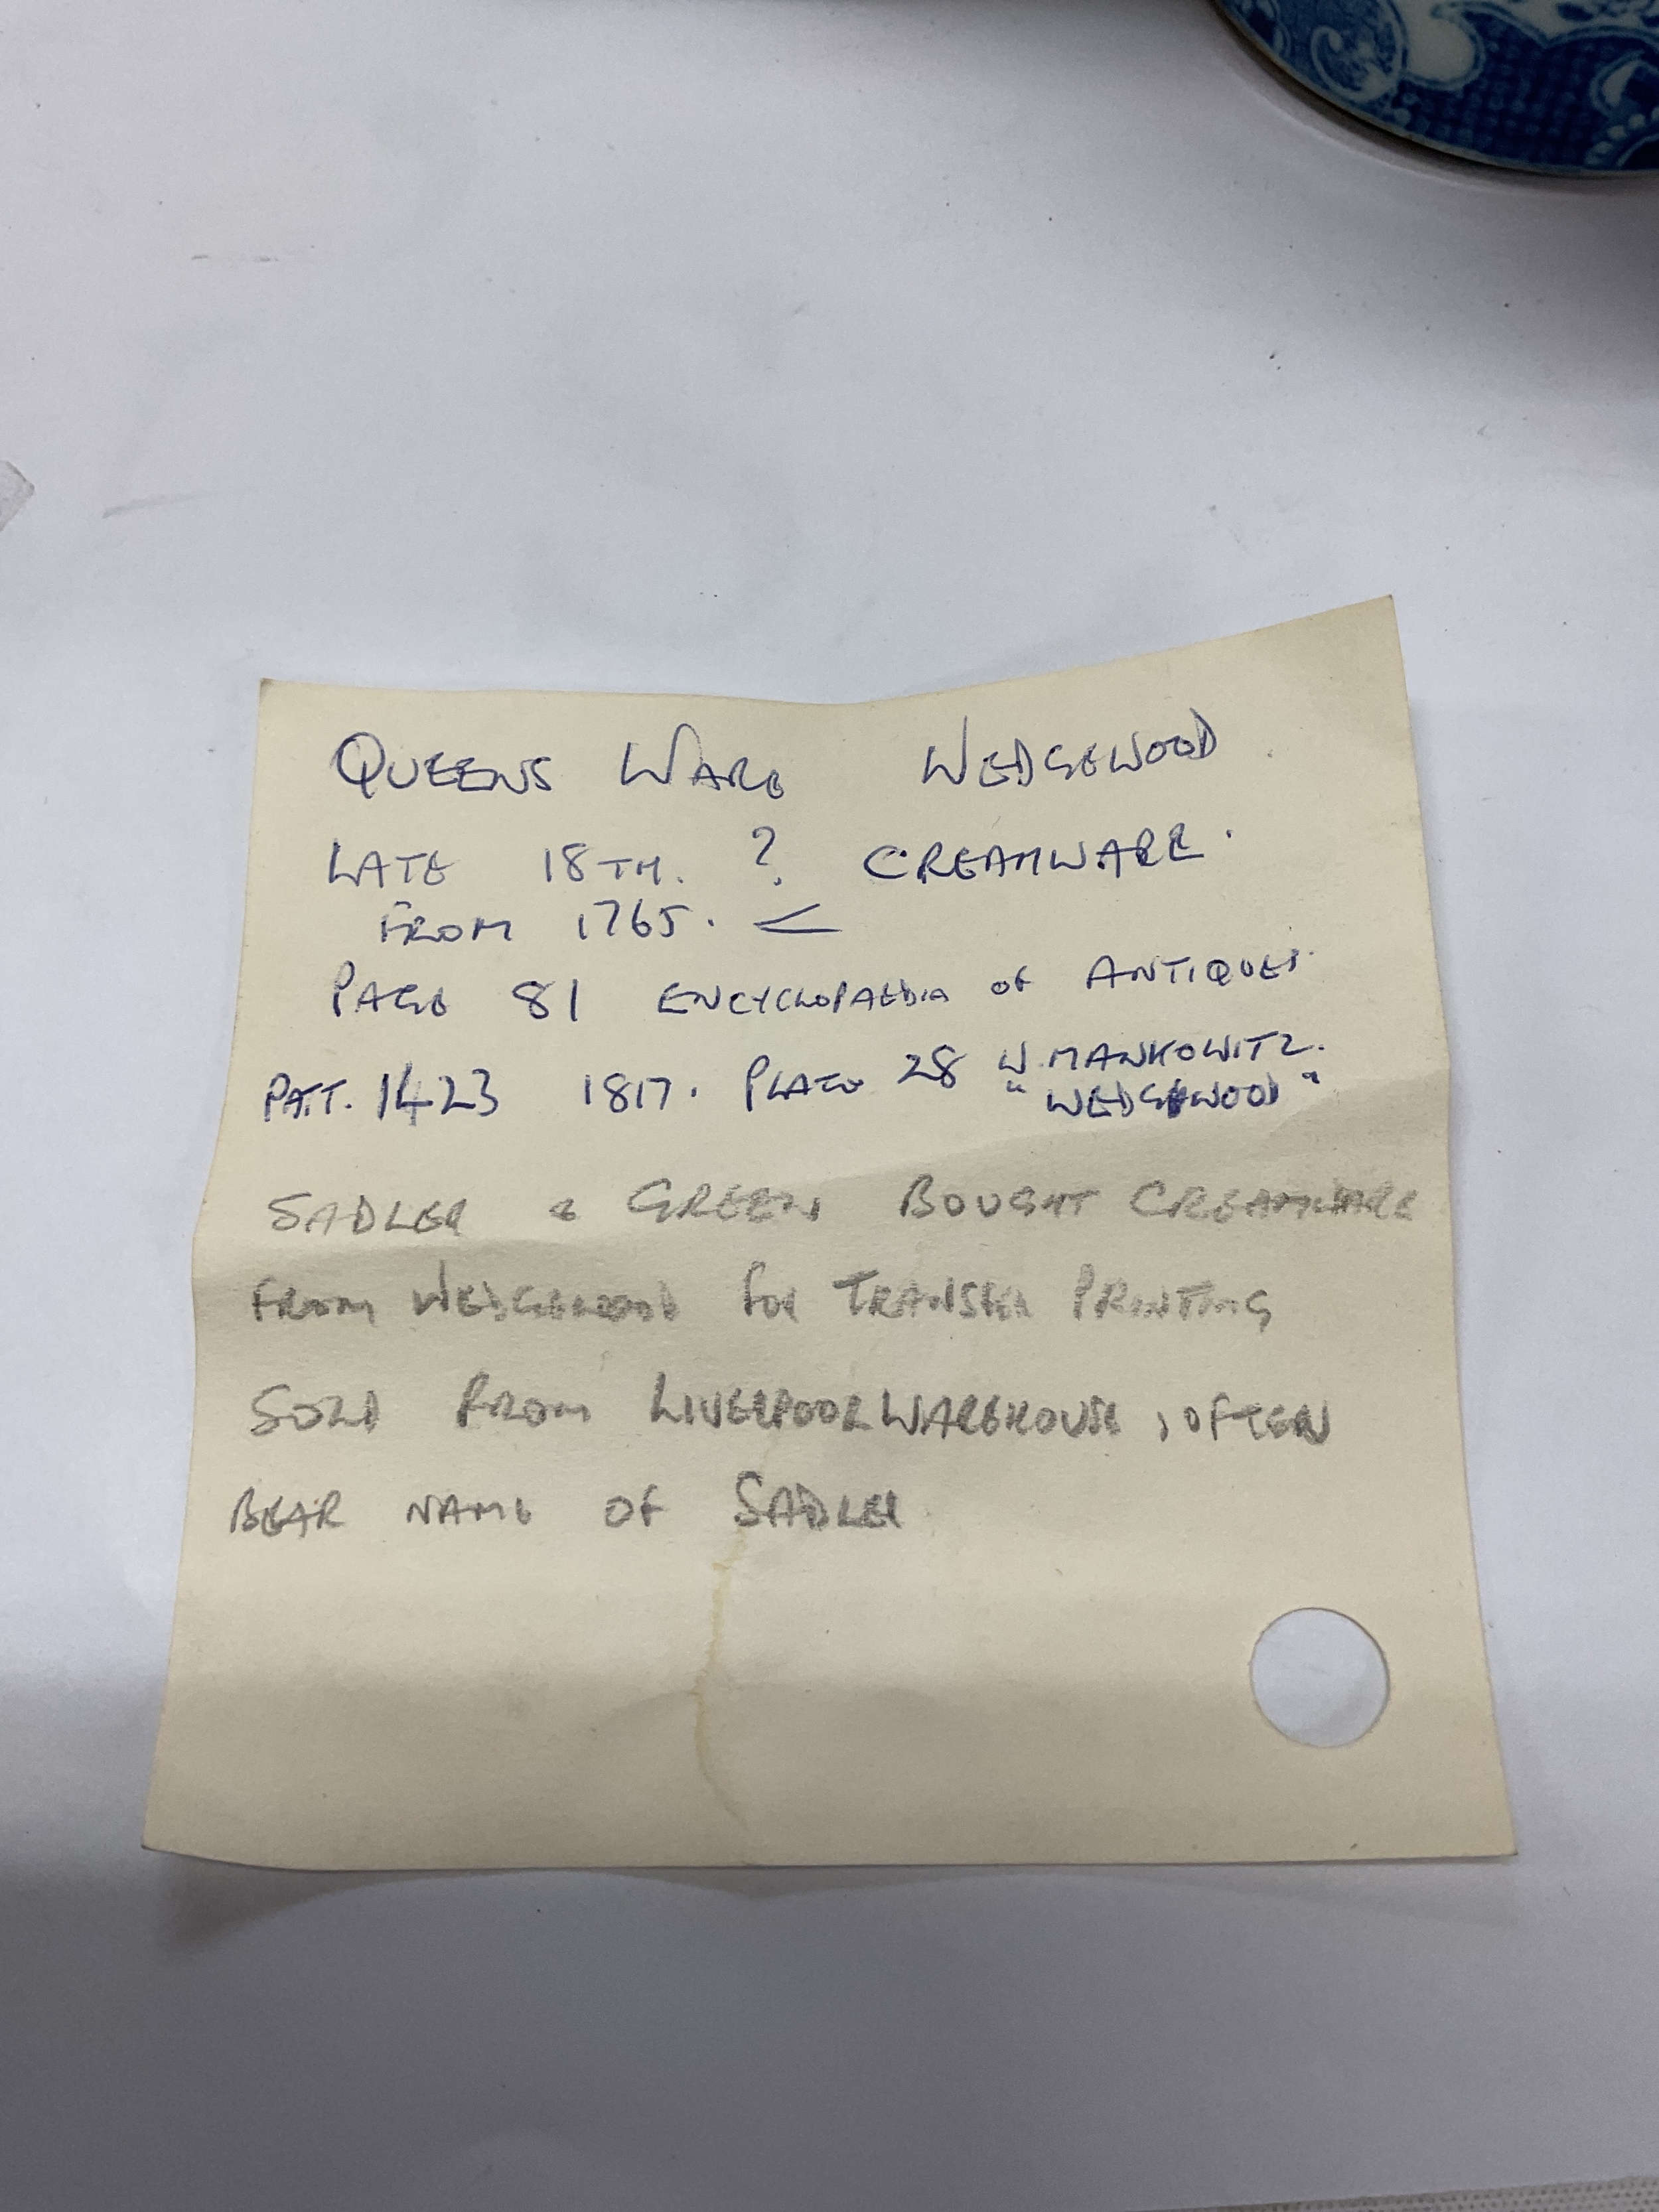 QUEENS WARE WEDGEWOOD
LATE 18TH. ? CREAMWARE.
FROM 1765. <
PAGE 81 ENCYCLOPAEDIA OF ANTIQUES.
PATT. 1423 1817. PLATE 28 W. MANKOWITZ.
"WEDGWOOD"
SADLER & GREEN BOUGHT CREAMWARE
FROM WEDGEWOOD FOR TRANSFER PRINTING
SOLD FROM LIVERPOOL WAREHOUSE, OFTEN
BEAR NAME OF SADLER